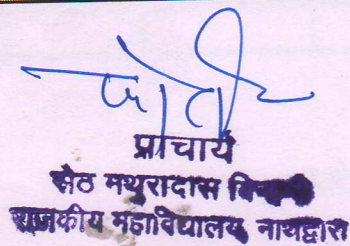 प्राचार्य
सेठ मथुरादास
राजकीय महाविद्यालय, नाथद्वारा